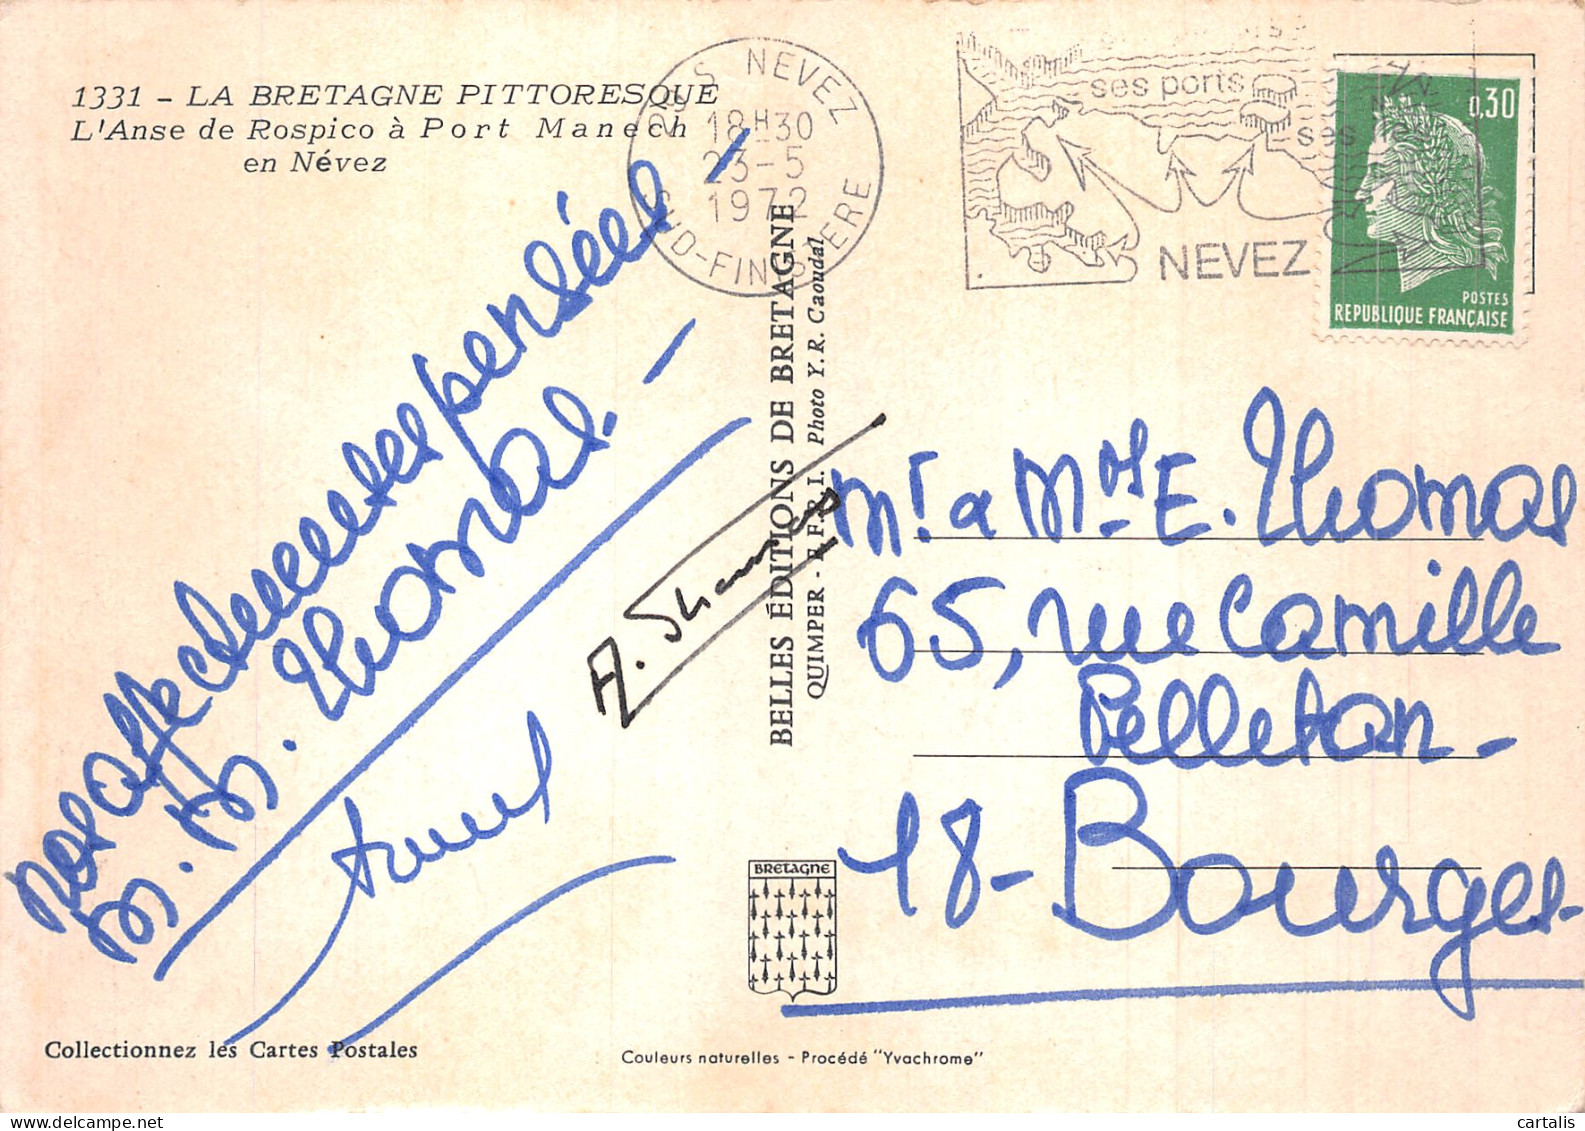 1331 - LA BRETAGNE PITTORESQUE
L'Anse de Rospico à Port Manech
en Névez
NEVEZ
18H30
23-5
1972
SUD-FINISTERE
ses ports
ses îles
NEVEZ
0,30
POSTES
REPUBLIQUE FRANÇAISE
nos affectueuses pensées -
M. M. Thomas. -
A. Thomas
BELLES ÉDITIONS DE BRETAGNE
QUIMPER - E.F.R.I. Photo Y. R. Caoudal
Mr. a Mme E. Thomas
65, rue Camille
Pelletan -
18 - Bourges -
BRETAGNE
Collectionnez les Cartes Postales
Couleurs naturelles - Procédé "Yvachrome"
cartalis